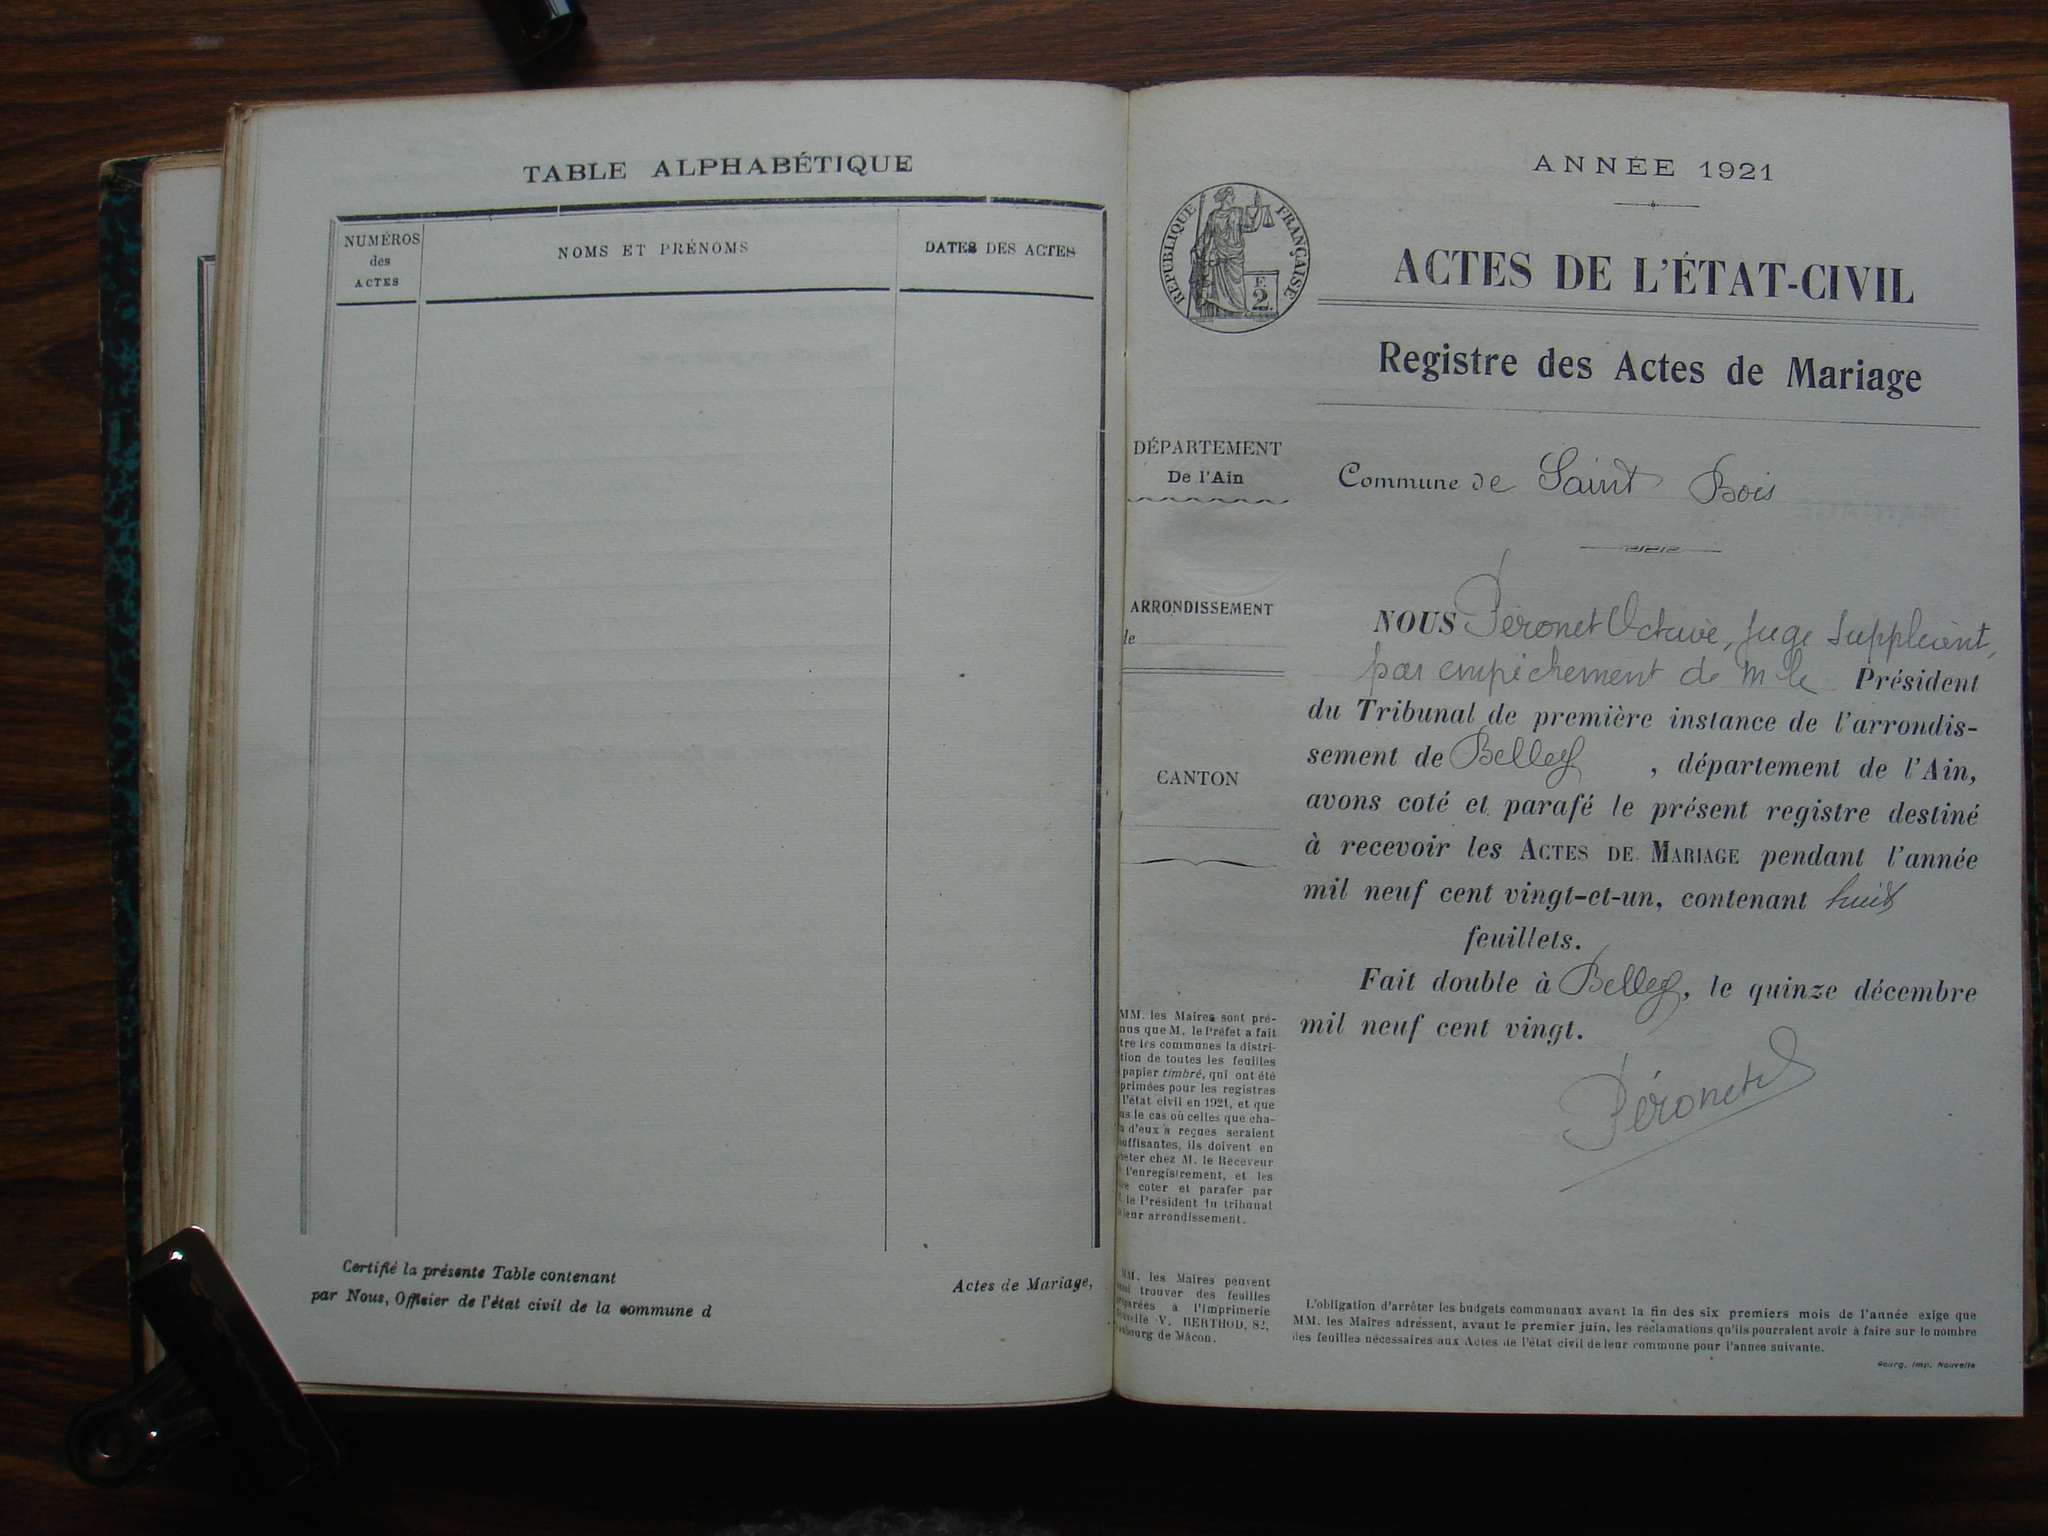 TABLE ALPHABÉTIQUE
NUMÉROS
des
ACTES
NOMS ET PRÉNOMS
DATES DES ACTES
Certifié la présente Table contenant
Actes de Mariage,
par Nous, Officier de l'état civil de la commune d
ANNÉE 1921
RÉPUBLIQUE FRANÇAISE
F.
2
ACTES DE L'ÉTAT-CIVIL
Registre des Actes de Mariage
DÉPARTEMENT
De l'Ain
Commune de Saint Bois
ARRONDISSEMENT
de
CANTON
NOUS Péronet Octave, juge suppléant,
par empêchement de M le Président
du Tribunal de première instance de l'arrondis-
sement de Belley, département de l'Ain,
avons coté et parafé le présent registre destiné
à recevoir les ACTES DE MARIAGE pendant l'année
mil neuf cent vingt-et-un, contenant huit
feuillets.
Fait double à Belley, le quinze décembre
mil neuf cent vingt.
Péronet
MM. les Maires sont pré-
nus que M. le Préfet a fait
tre les communes la distri-
tion de toutes les feuilles
papier timbré, qui ont été
primées pour les registres
l'état civil en 1921, et que
ns le cas où celles que cha-
n d'eux a reçues seraient
suffisantes, ils doivent en
heter chez M. le Receveur
l'enregistrement, et les
re coter et parafer par
le Président du tribunal
leur arrondissement.
MM. les Maires peuvent
ussi trouver des feuilles
préparées à l'Imprimerie
Nouvelle V. BERTHOD, 82,
faubourg de Mâcon.
L'obligation d'arrêter les budgets communaux avant la fin des six premiers mois de l'année exige que
MM. les Maires adressent, avant le premier juin, les réclamations qu'ils pourraient avoir à faire sur le nombre
des feuilles nécessaires aux Actes de l'état civil de leur commune pour l'année suivante.
Bourg, Imp. Nouvelle